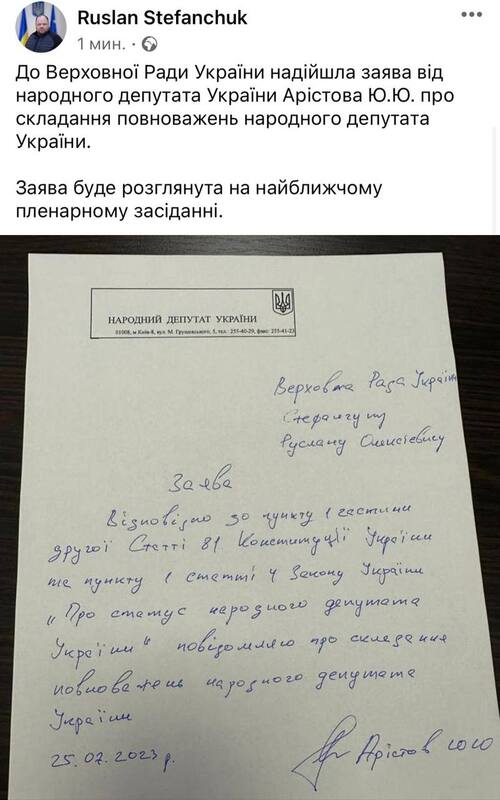 Ruslan Stefanchuk
1 мин. ·
До Верховної Ради України надійшла заява від
народного депутата України Арістова Ю.Ю. про
складання повноважень народного депутата
України.
Заява буде розглянута на найближчому
пленарному засіданні.
НАРОДНИЙ ДЕПУТАТ УКРАЇНИ
01008, м Київ-8, вул. М. Грушевського, 5, тел.: 255-40-29, факс: 255-41-23
Верховна Рада Україн
Стефанчуку
Руслану Олексієвичу
Заява
Відповідно до пункту 1 частини
другої Статті 81 Конституції України
та пункту 1 статті 4 Закону України
„Про статус народного депутата
України“ повідомляю про складання
повноважень народного депутата
України
25.07.2023 р.
Арістов ЮЮ